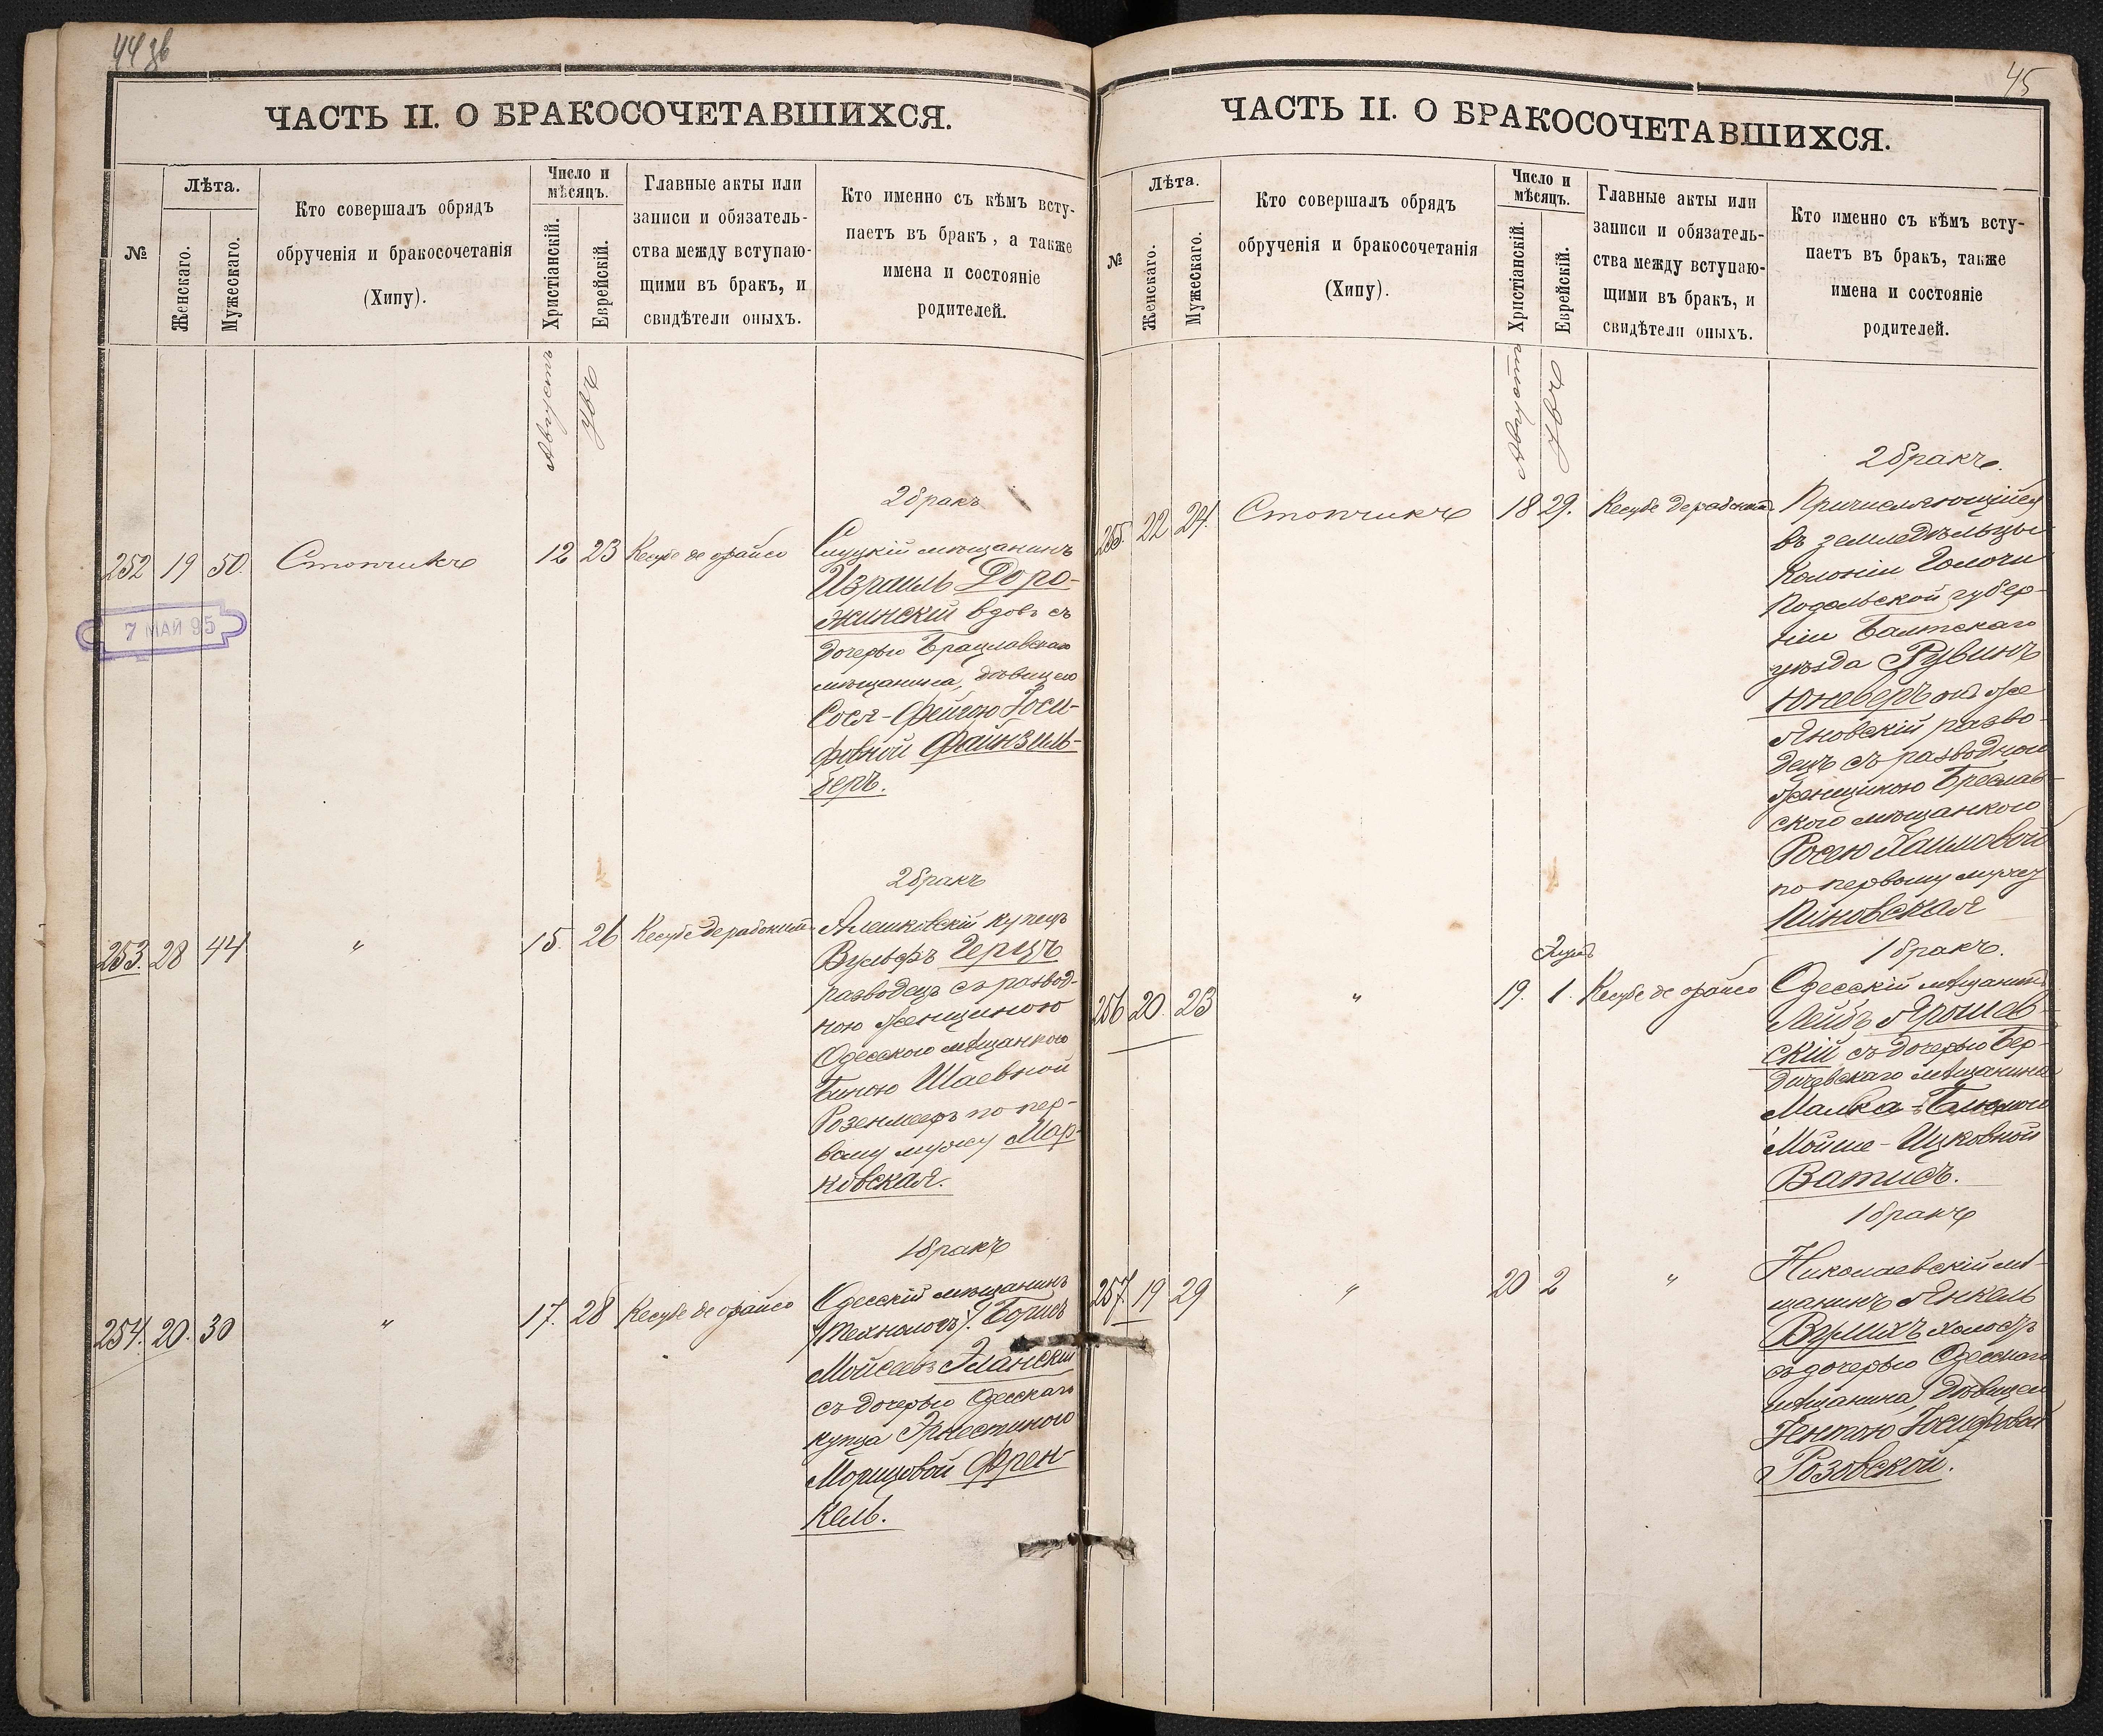 44 зв
ЧАСТЬ II. О БРАКОСОЧЕТАВШИХСЯ.
№
Лѣта.
Женскаго.
Мужескаго.
Кто совершалъ обрядъ
обрученія и бракосочетанія
(Хипу).
Число и
мѣсяцъ.
Христіанскій.
Еврейскій.
Главные акты или
записи и обязатель-
ства между вступаю-
щими въ бракъ, и
свидѣтели оныхъ.
Кто именно съ кѣмъ всту-
паетъ въ бракъ, а также
имена и состояніе
родителей.
Августъ
2 бракъ
252 19 50. Стопчикъ 12 23
Слуцкій мѣщанинъ
Израиль Доро-
жинскій вдов съ
дочерью Брацлавскаго
мѣщанина, дѣвицею
Сося-Фейгою Іоси-
фовной Файнзиль-
беръ.
7 МАЙ 95
2 бракъ
253. 28 44 " 15. 26
Алешковскій купецъ
Вульфъ Герцъ
разводецъ съ развод-
ною женщиною
Одесскою мѣщанкою
Шаевной
по пер-
вому мужу Мар-
ковская.
1 бракъ
254. 20. 30 " 17. 28
Одесскій мѣщанинъ
/технологъ/. Борисъ
Эланскій
съ дочерью Одесскаго
купца Эрнестиною
Морицовой Френ-
кель.
45
ЧАСТЬ II. О БРАКОСОЧЕТАВШИХСЯ.
№
Лѣта.
Женскаго.
Мужескаго.
Кто совершалъ обрядъ
обрученія и бракосочетанія
(Хипу).
Число и
мѣсяцъ.
Христіанскій.
Еврейскій.
Главные акты или
записи и обязатель-
ства между вступаю-
щими въ бракъ, и
свидѣтели оныхъ.
Кто именно съ кѣмъ всту-
паетъ въ бракъ, также
имена и состояніе
родителей.
Августъ
2 бракъ.
255. 22 24. Стопчикъ 18 29.
Причисляющійся
въ земледѣльцы
Колоніи
Подольской губер-
ніи Балтскаго
уѣзда Рувинъ
онъ же
Яновскій разво-
децъ съ разводной
женщиною
скою мѣщанкою
Хаимовой
по первому мужу
1 бракъ.
256 20. 23 " 19. 1.
Одесскій мѣщанинъ
Лейбъ Ярошев-
скій съ дочерью Бер-
дичевскаго мѣщанина
Малка-
Мойше-Ицковной
Ватисъ.
1 бракъ
257. 19 29 " 20 2 "
Николаевскій мѣ-
щанинъ Янкель
Вурмихъ холостъ
съ дочерью Одесскаго
мѣщанина, дѣвицею
Іентою Іосифовой
Розовской.